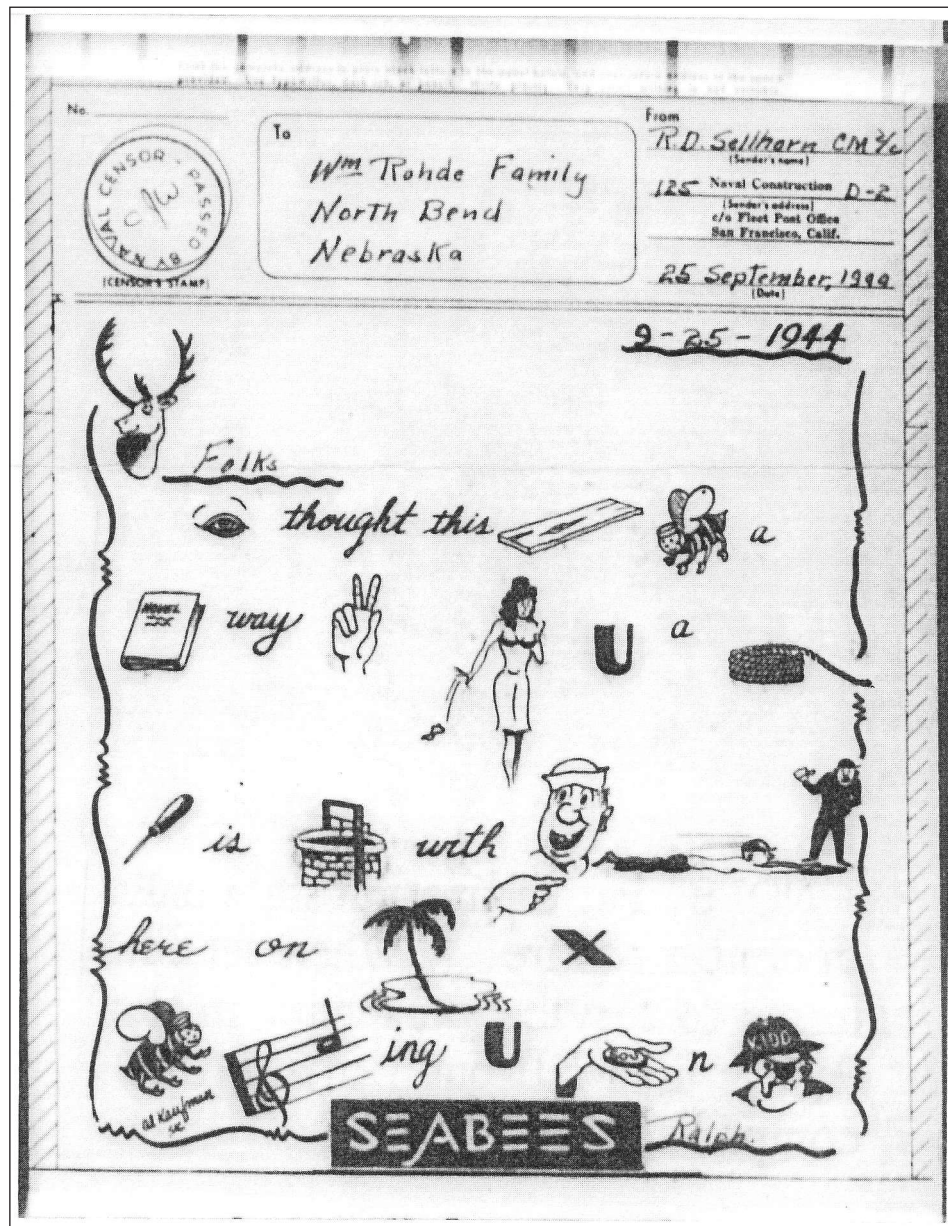 No.
CENSOR - PASSED BY NAVAL
(CENSOR'S STAMP)
To
Wm Rohde Family
North Bend
Nebraska
From
R.D. Sellhorn CM 2/c
(Sender's name)
125 Naval Construction D-2
(Sender's address)
c/o Fleet Post Office
San Francisco, Calif.
25 September, 1944
(Date)
9-25-1944
Folks
thought this a
NOVEL way U a
is with
here on X
ing U n
KIDD
al Kaufman
SEABEES Ralph.